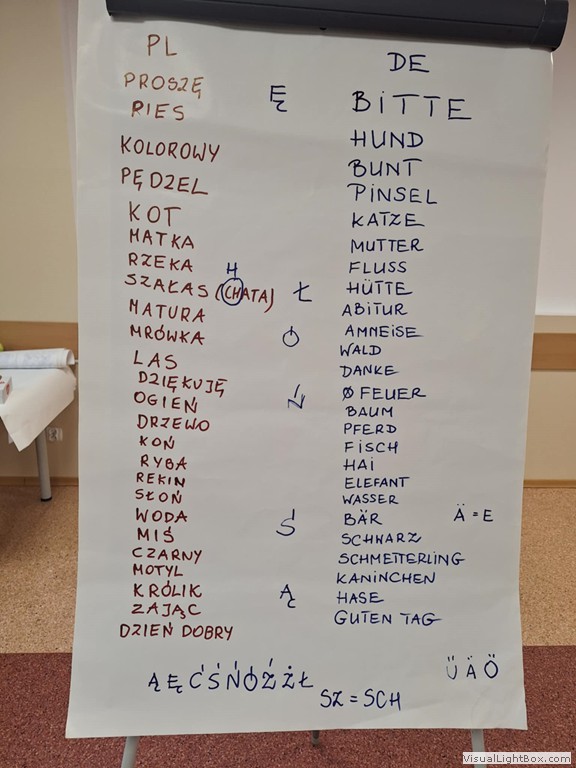 PL DE
PROSZĘ Ę BITTE
PIES HUND
KOLOROWY BUNT
PĘDZEL PINSEL
KOT KATZE
MATKA MUTTER
RZEKA FLUSS
H
SZAŁAS (CHATA) Ł HÜTTE
MATURA ABITUR
MRÓWKA Ó AMNEISE
LAS WALD
DZIĘKUJĘ DANKE
OGIEŃ Ń Ø FEUER
DRZEWO BAUM
KOŃ PFERD
RYBA FISCH
REKIN HAI
SŁOŃ ELEFANT
WODA WASSER
MIŚ Ś BÄR Ä = E
CZARNY SCHWARZ
MOTYL SCHMETTERLING
KRÓLIK Ą KANINCHEN
ZAJĄC HASE
DZIEŃ DOBRY GUTEN TAG
Ü Ä Ö
Ą Ę Ć Ś Ń Ó Ź Ż Ł
SZ = SCH
VisualLightBox.com